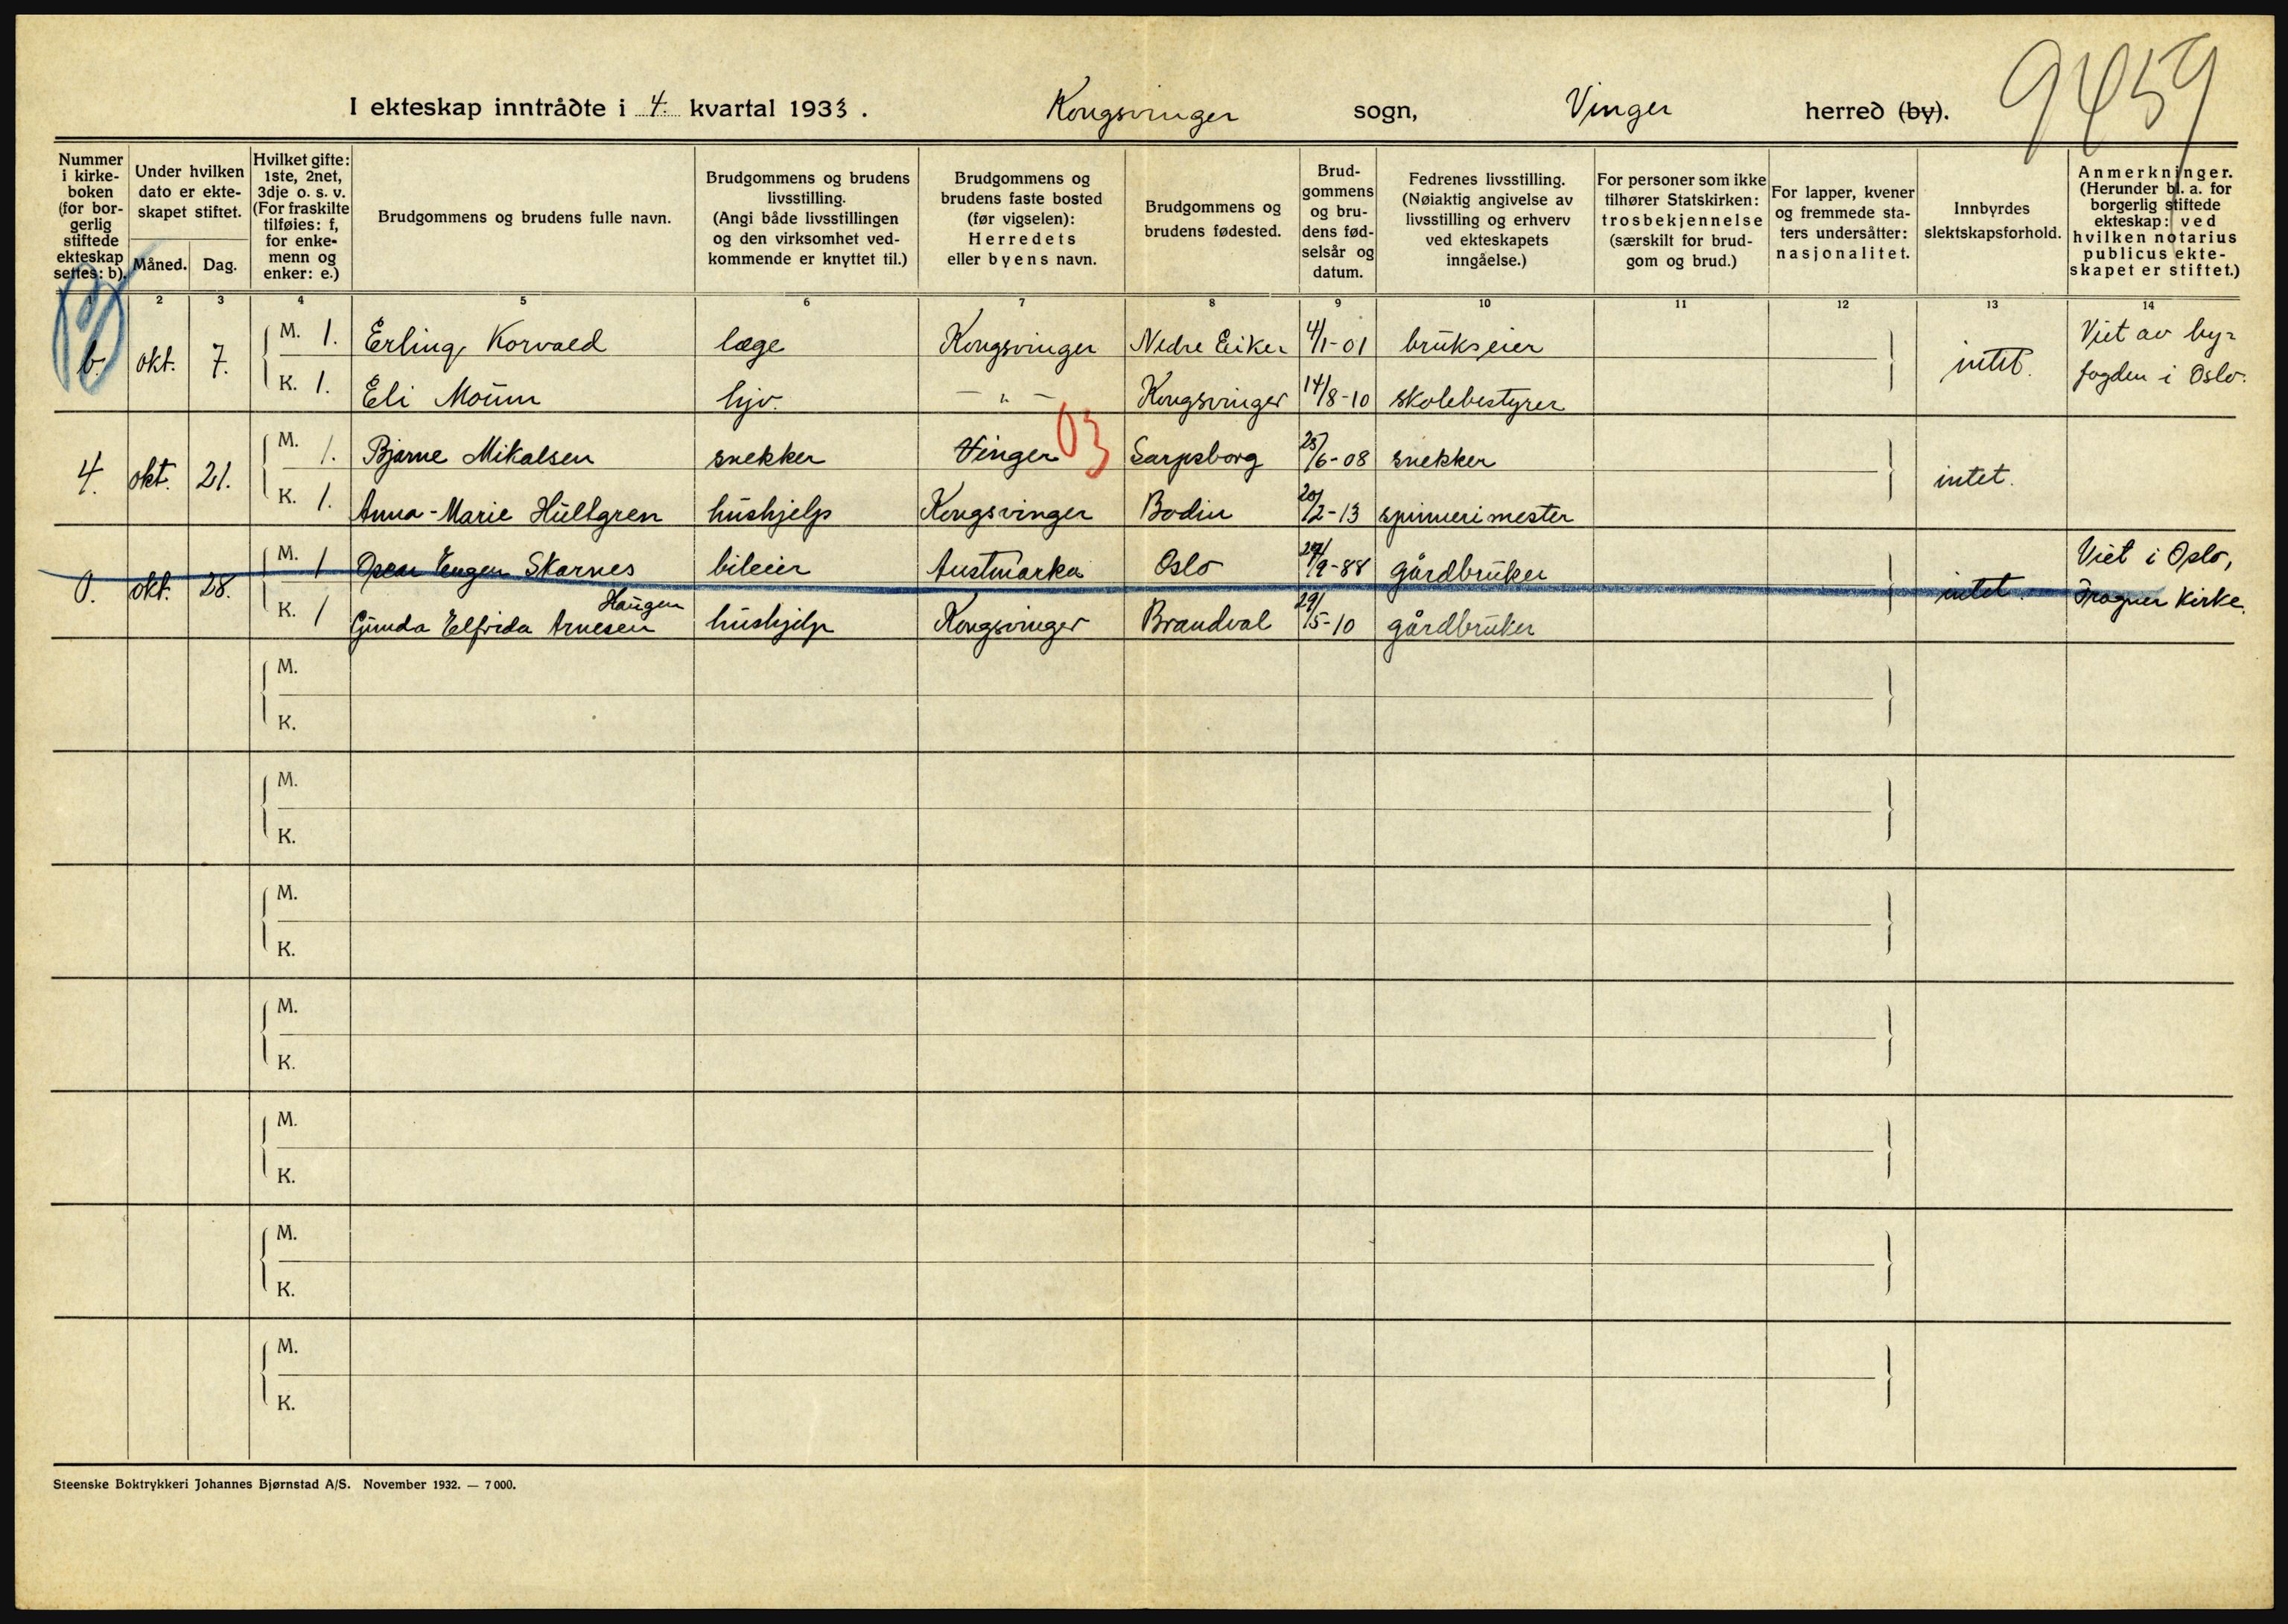 9459
I ekteskap inntrådte i 4. kvartal 1933. Kongsvinger sogn, Vinger herred (by).
Nummer i kirkeboken (for borgerlig stiftede ekteskap settes: b).
Under hvilken dato er ekteskapet stiftet.
Måned. Dag.
Hvilket gifte: 1ste, 2net, 3dje o. s. v. (For fraskilte tilføies: f, for enkemenn og enker: e.)
Brudgommens og brudens fulle navn.
Brudgommens og brudens livsstilling. (Angi både livsstillingen og den virksomhet vedkommende er knyttet til.)
Brudgommens og brudens faste bosted (før vigselen): Herredets eller byens navn.
Brudgommens og brudens fødested.
Brudgommens og brudens fødselsår og datum.
Fedrenes livsstilling. (Nøiaktig angivelse av livsstilling og erhverv ved ekteskapets inngåelse.)
For personer som ikke tilhører Statskirken: trosbekjennelse (særskilt for brudgom og brud.)
For lapper, kvener og fremmede staters undersåtter: nasjonalitet.
Innbyrdes slektskapsforhold.
Anmerkninger. (Herunder bl. a. for borgerlig stiftede ekteskap: ved hvilken notarius publicus ekteskapet er stiftet.)
1 2 3 4 5 6 7 8 9 10 11 12 13 14
b. okt. 7. M. 1. Erling Korvald læge Kongsvinger Nedre Eiker 4/1-01 brukseier intet. Viet av by-
K. 1. Eli Moum hjv. — " — Kongsvinger 14/8-10 skolebestyrer fogden i Oslo.
4. okt. 21. M. 1. Bjarne Mikalsen snekker Vinger 03 Sarpsborg 25/6-08 snekker intet.
K. 1. Anna-Marie Hultgren hushjelp Kongsvinger Bodin 20/2-13 spinnerimester
0. okt. 28. M. 1 Oscar Eugen Skarnes bileier Austmarka Oslo 29/9-88 gårdbruker intet. Viet i Oslo,
K. 1 Gunda Elfrida Arnesen Haugen hushjelp Kongsvinger Brandval 29/5-10 gårdbruker Frogner Kirke.
M.
K.
M.
K.
M.
K.
M.
K.
M.
K.
M.
K.
M.
K.
Steenske Boktrykkeri Johannes Bjørnstad A/S. November 1932. — 7000.